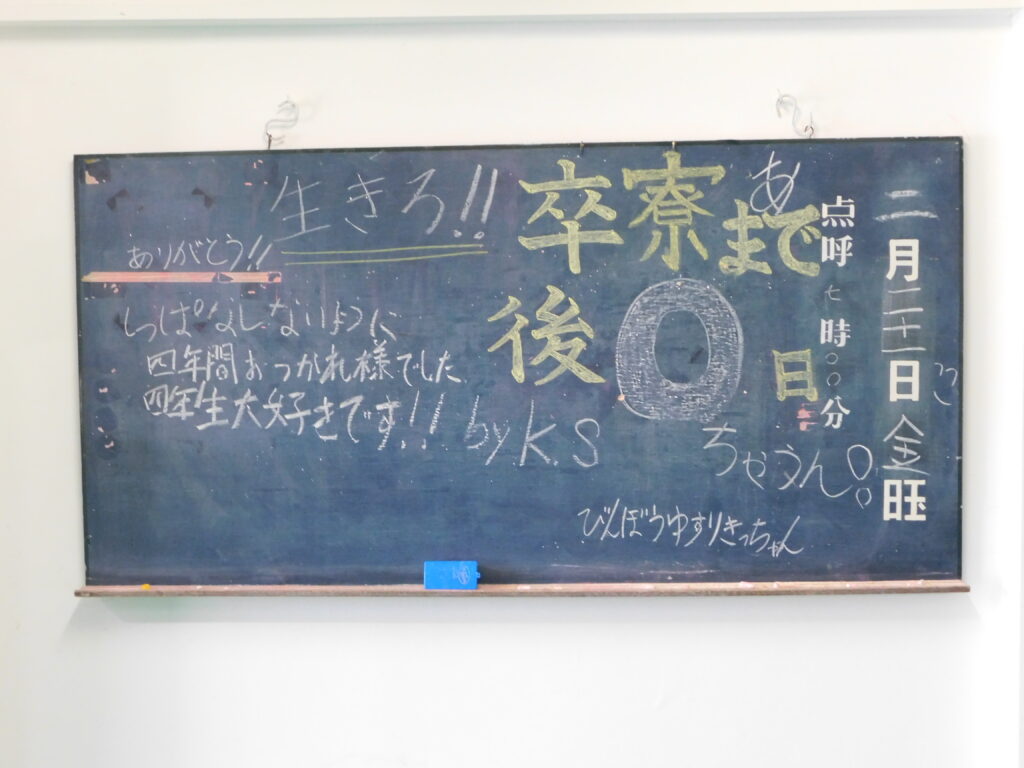 二月二十一日金旺
点呼七時〇〇分
卒寮まで
後0日
あ
ちゃうん
びんぼうゆすりきっちゃん
生きろ!!
ありがとう!!
しっぱなしないように
四年間おつかれ様でした
四年生大好きです!! by K.S